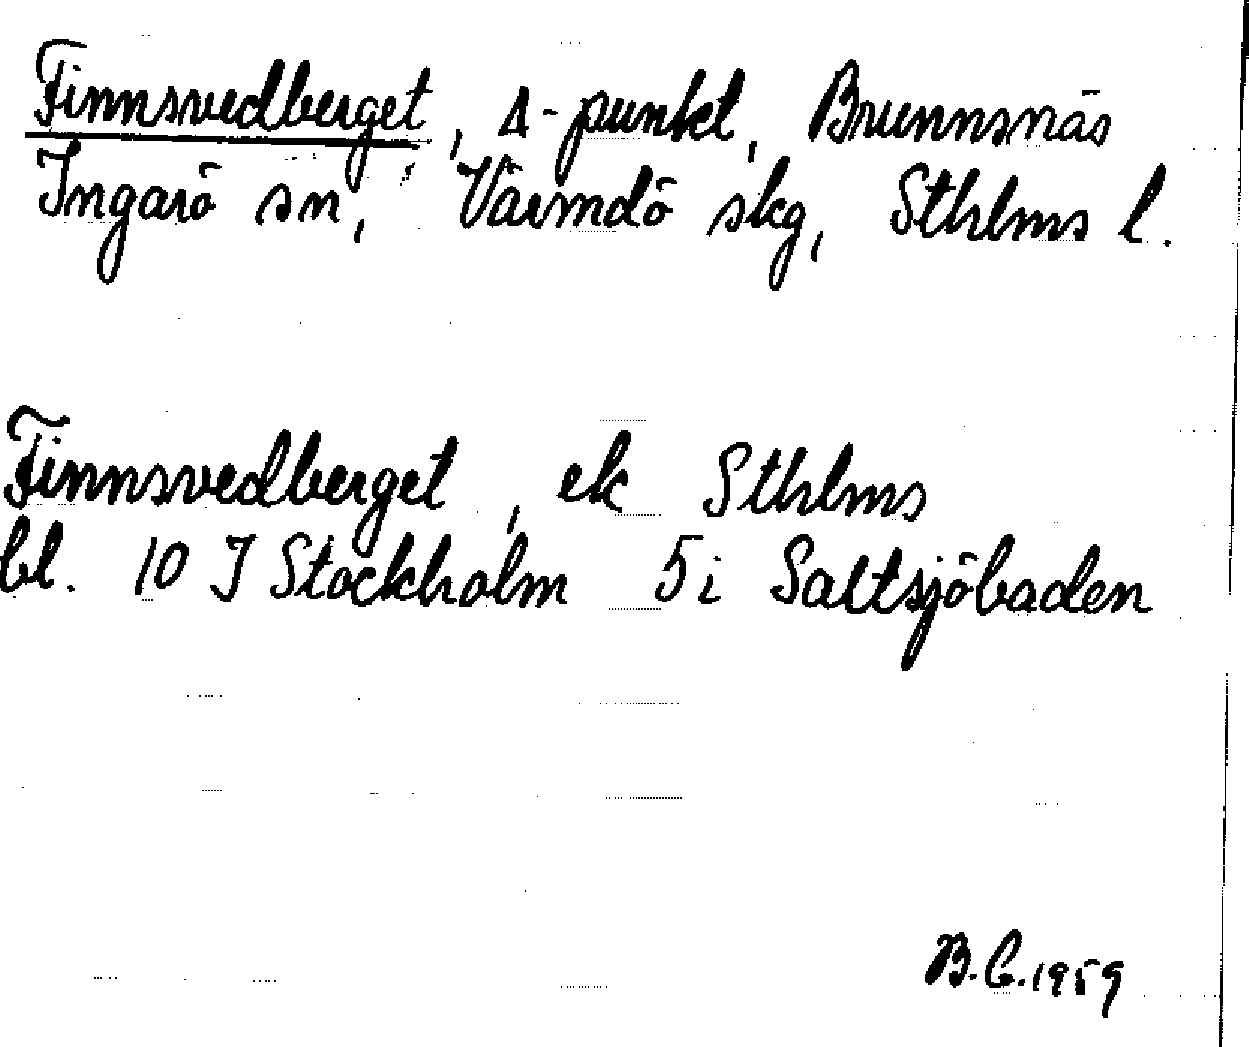 Finnsvedberget, Δ-punkt, Brunnsnäs
Ingarö sn, Värmdö skg, Sthlms l.
Finnsvedberget, ek Sthlms
bl. 10 J Stockholm 5i Saltsjöbaden
B.C. 1959